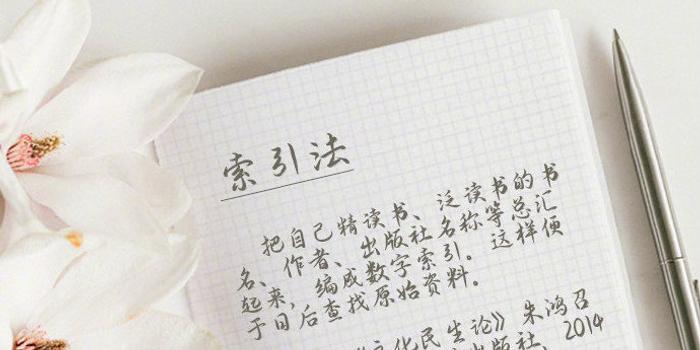 索引法
把自己精读书、泛读书的书
名、作者、出版社名称等总汇
起来，编成数字索引。这样便
于日后查找原始资料。
化民生论》朱鸿召
出版社、2014